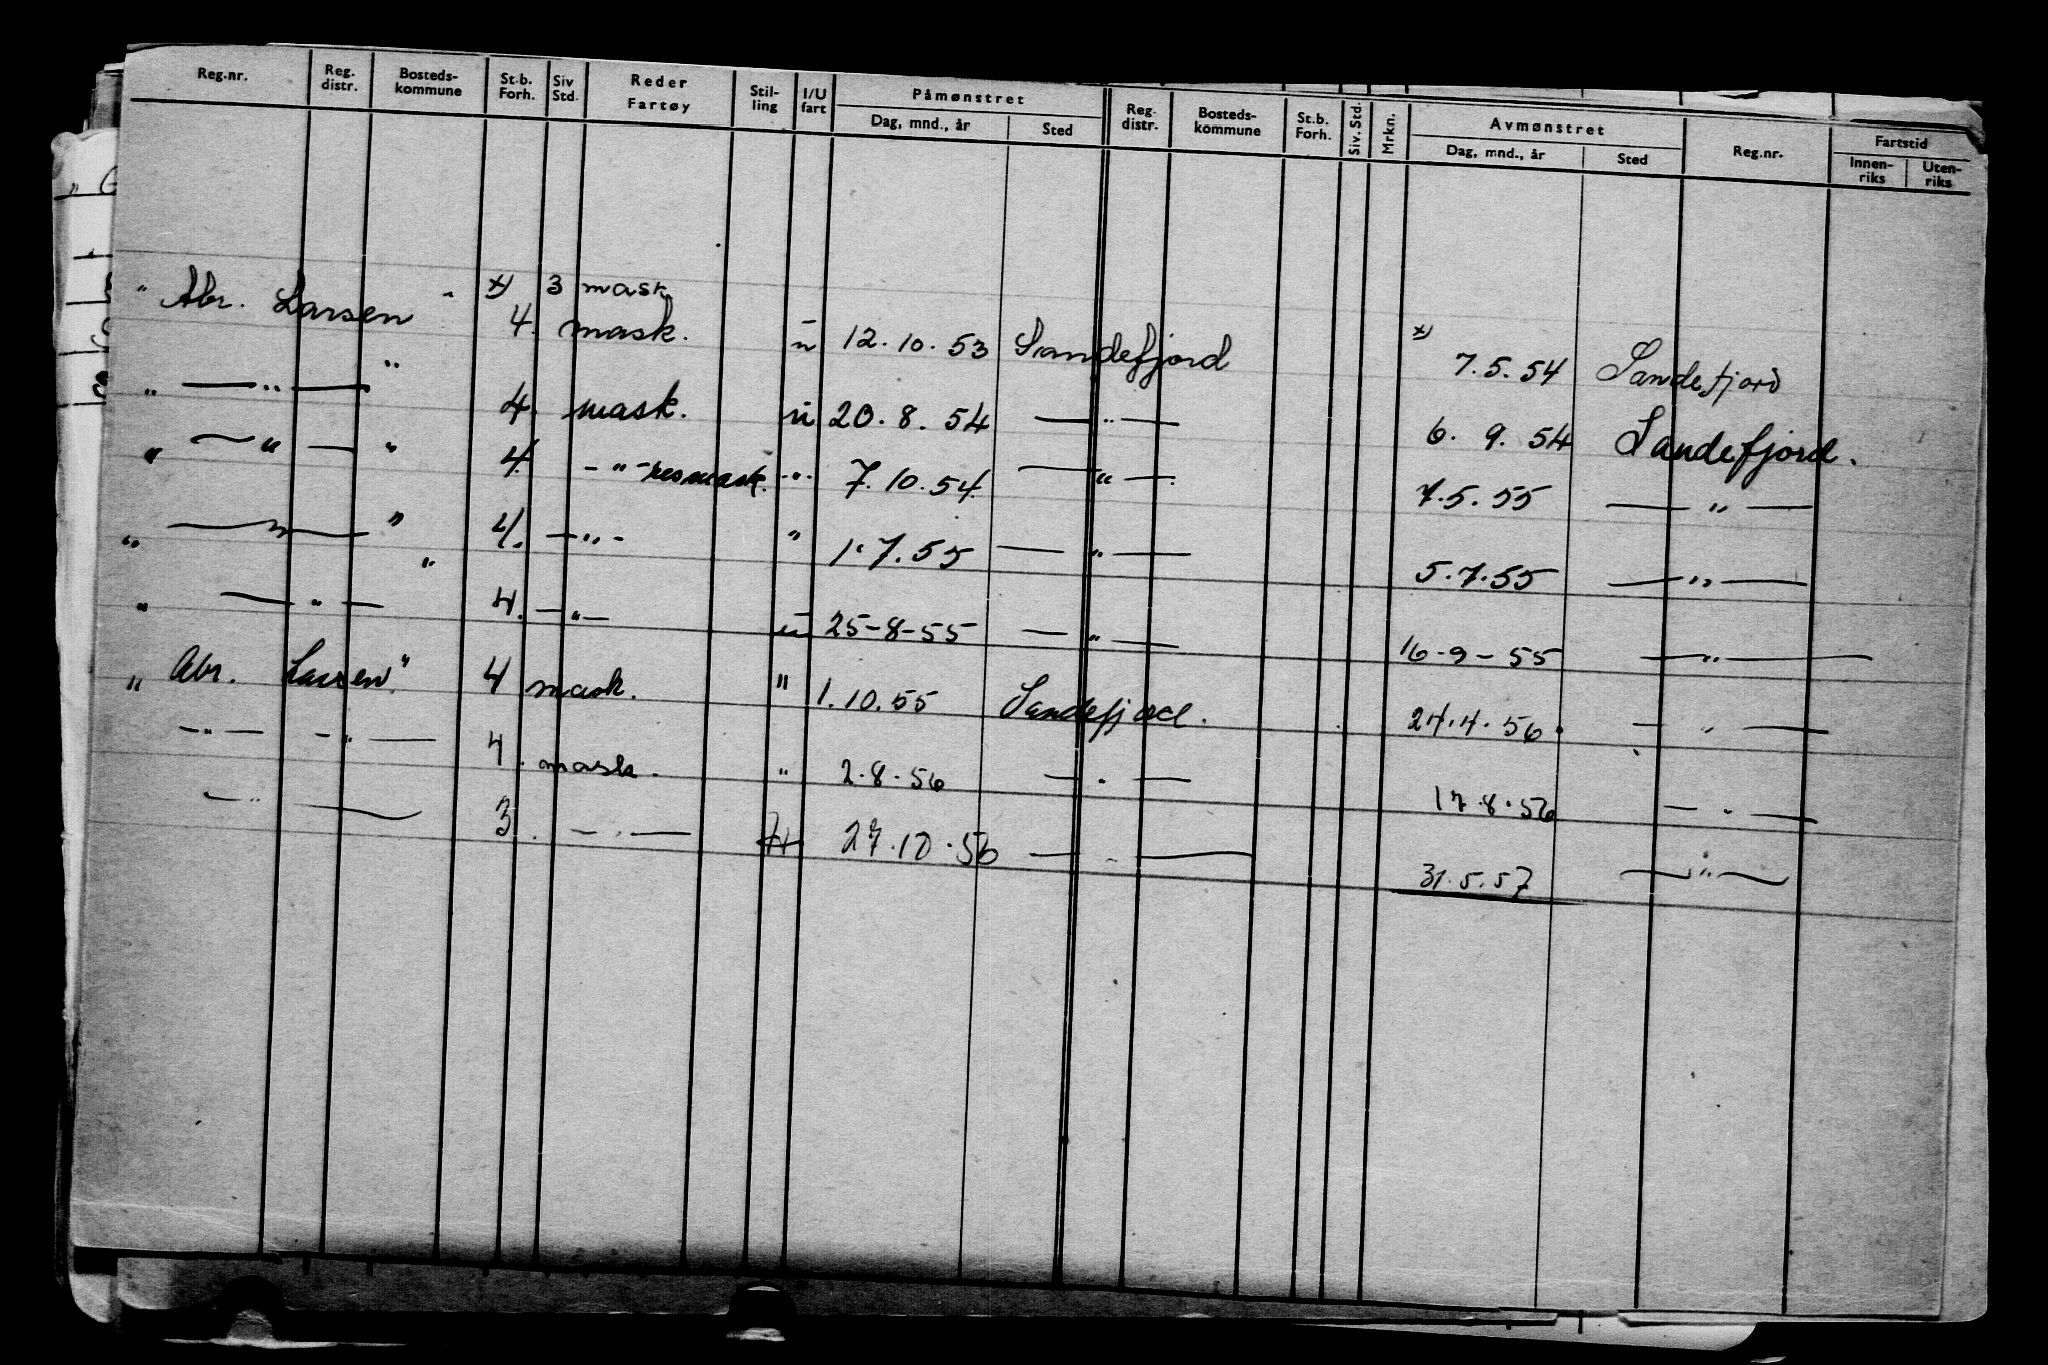 Reg.nr. Reg. distr. Bosteds- kommune St.b. Forh. Siv Std. Reder Fartøy Stil- ling I/U fart Påmønstret Dag, mnd., år Sted Reg. distr. Bosteds- kommune St.b. Forh. Siv. Std. Mrkn. Avmønstret Dag, mnd., år Sted Reg.nr. Fartstid Innen- riks Uten- riks
x) 3 mask
" Abr. Larsen " 4. mask. u 12.10.53 Sandefjord x) 7.5.54 Sandefjord
" — " — " 4. mask. u 20.8.54 — " — 6.9.54 Sandefjord.
" — " — " 4. - " - resmask. " 7.10.54 — " — 7.5.55 — " —
" — " — " 4. — " - " 1.7.55 — " — 5.7.55 — " —
" — " — " 4. — " — u 25-8-55 — " — 16-9-55 — " —
" Abr. Larsen" 4 mask. " 1.10.55 Sandefjord. 24.4.56 — " —
— " — — " — 4. mask. " 2.8.56 — " — 17.8.56 — " —
— " — 3. — " — 27.10.56 — " — 31.5.57 — " —